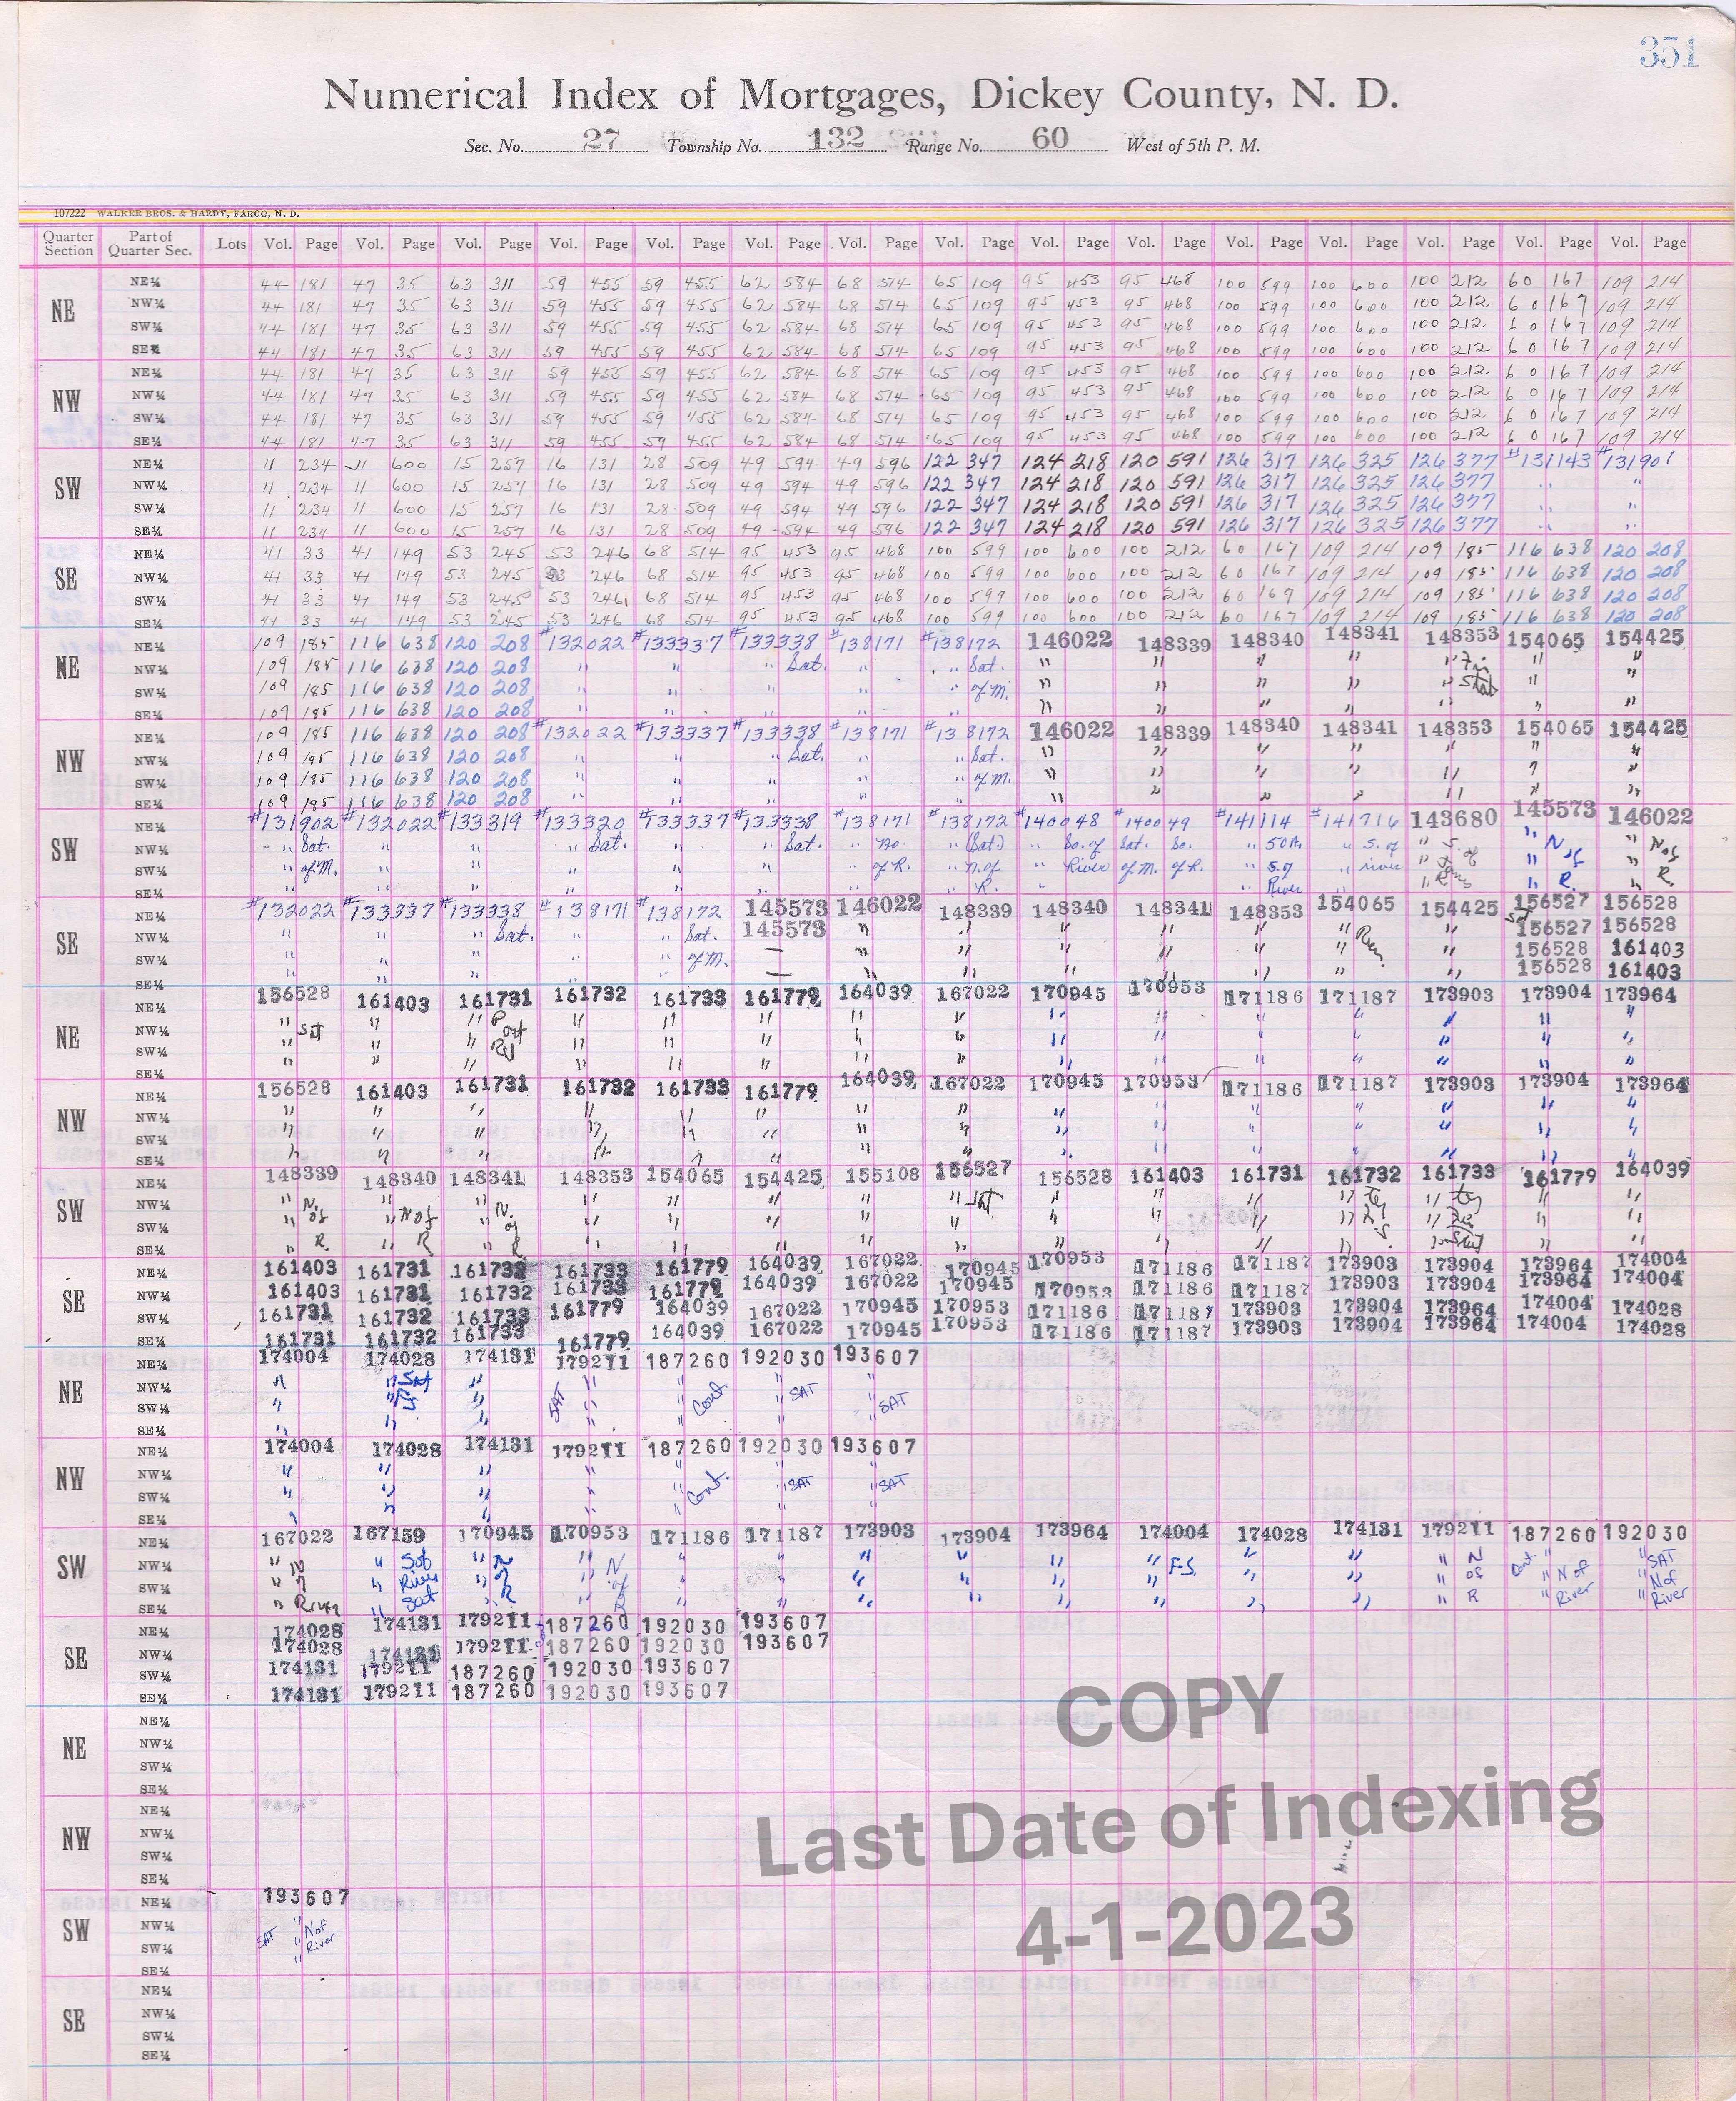 351
Numerical Index of Mortgages, Dickey County, N. D.
Sec. No. 27 Township No. 132 Range No. 60 West of 5th P. M.
107222 WALKER BROS. & HARDY, FARGO, N. D.
Quarter Section Part of Quarter Sec. Lots Vol. Page Vol. Page Vol. Page Vol. Page Vol. Page Vol. Page Vol. Page Vol. Page Vol. Page Vol. Page Vol. Page Vol. Page Vol. Page Vol. Page Vol. Page
NE
NE¼ 44 181 47 35 63 311 59 455 59 455 62 584 68 514 65 109 95 453 95 468 100 599 100 600 100 212 60 167 109 214
NW¼ 44 181 47 35 63 311 59 455 59 455 62 584 68 514 65 109 95 453 95 468 100 599 100 600 100 212 60 167 109 214
SW¼ 44 181 47 35 63 311 59 455 59 455 62 584 68 514 65 109 95 453 95 468 100 599 100 600 100 212 60 167 109 214
SE¼ 44 181 47 35 63 311 59 455 59 455 62 584 68 514 65 109 95 453 95 468 100 599 100 600 100 212 60 167 109 214
NW
NE¼ 44 181 47 35 63 311 59 455 59 455 62 584 68 514 65 109 95 453 95 468 100 599 100 600 100 212 60 167 109 214
NW¼ 44 181 47 35 63 311 59 455 59 455 62 584 68 514 65 109 95 453 95 468 100 599 100 600 100 212 60 167 109 214
SW¼ 44 181 47 35 63 311 59 455 59 455 62 584 68 514 65 109 95 453 95 468 100 599 100 600 100 212 60 167 109 214
SE¼ 44 181 47 35 63 311 59 455 59 455 62 584 68 514 65 109 95 453 95 468 100 599 100 600 100 212 60 167 109 214
SW
NE¼ 11 234 11 600 15 257 16 131 28 509 49 594 49 596 122 347 124 218 120 591 126 317 126 325 126 377 #131143 #131901
NW¼ 11 234 11 600 15 257 16 131 28 509 49 594 49 596 122 347 124 218 120 591 126 317 126 325 126 377 " "
SW¼ 11 234 11 600 15 257 16 131 28 509 49 594 49 596 122 347 124 218 120 591 126 317 126 325 126 377 " "
SE¼ 11 234 11 600 15 257 16 131 28 509 49 594 49 596 122 347 124 218 120 591 126 317 126 325 126 377 " "
SE
NE¼ 41 33 41 149 53 245 53 246 68 514 95 453 95 468 100 599 100 600 100 212 60 167 109 214 109 185 116 638 120 208
NW¼ 41 33 41 149 53 245 53 246 68 514 95 453 95 468 100 599 100 600 100 212 60 167 109 214 109 185 116 638 120 208
SW¼ 41 33 41 149 53 245 53 246 68 514 95 453 95 468 100 599 100 600 100 212 60 169 109 214 109 185 116 638 120 208
SE¼ 41 33 41 149 53 245 53 246 68 514 95 453 95 468 100 599 100 600 100 212 60 167 109 214 109 185 116 638 120 208
NE
NE¼ 109 185 116 638 120 208 #132022 #133337 #133338 #138171 #138172 146022 148339 148340 148341 148353 154065 154425
NW¼ 109 185 116 638 120 208 " " " Sat. " " Sat. " " " " " " "
SW¼ 109 185 116 638 120 208 " " " " " of M. " " " " " " "
SE¼ 109 185 116 638 120 208 " " " " " " " " " " "
NW
NE¼ 109 185 116 638 120 208 #132022 #133337 #133338 #138171 #138172 146022 148339 148340 148341 148353 154065 154425
NW¼ 109 185 116 638 120 208 " " " Sat. " " Sat. " " " " " " "
SW¼ 109 185 116 638 120 208 " " " " " of M. " " " " " " "
SE¼ 109 185 116 638 120 208 " " " " " " " " " " " "
SW
NE¼ #131902 #132022 #133319 #133320 #133337 #133338 #138171 #138172 #140048 #140049 #141114 #141716 143680 145573 146022
NW¼ " Sat. " " " Sat. " " Sat. " No. " (Sat.) " So. of Sat. So. " So R. " S. of " S. " N " N of
SW¼ " of M. " " " " " " of R. " N. of " River of M. of R. " S. of " river " of " of "
SE¼ " " " " " " " " R. " " River " " " R. " R.
SE
NE¼ #132022 #133337 #133338 #138171 #138172 145573 146022 148339 148340 148341 148353 154065 154425 156527 156528
NW¼ " " " Sat. " " Sat. 145573 " " " " " " " Sat 156527 156528
SW¼ " " " " " of M. — " " " " " " " 156528 161403
SE¼ " " " " " — " " " " " " " 156528 161403
NE
NE¼ 156528 161403 161731 161732 161733 161779 164039 167022 170945 170953 171186 171187 173903 173904 173964
NW¼ " Sat " " P " " " " " " " " " " " "
SW¼ " " " of " " " " " " " " " " " "
SE¼ " " " " " " " " " " " " " " "
NW
NE¼ 156528 161403 161731 161732 161733 161779 164039 167022 170945 170953 171186 171187 173903 173904 173964
NW¼ " " " " " " " " " " " " " " "
SW¼ " " " " " " " " " " " " " " "
SE¼ " " " " " " " " " " " " " " "
SW
NE¼ 148339 148340 148341 148353 154065 154425 155108 156527 156528 161403 161731 161732 161733 161779 164039
NW¼ " N. " N of " N. " " " " " Sat " " " " " " "
SW¼ " of " " of " " " " " " " " " " " "
SE¼ " R. " R " R. " " " " " " " " " " " "
SE
NE¼ 161403 161731 161732 161733 161779 164039 167022 170945 170953 171186 171187 173903 173904 173964 174004
NW¼ 161403 161731 161732 161733 161779 164039 167022 170945 170953 171186 171187 173903 173904 173964 174004
SW¼ 161731 161732 161733 161779 164039 167022 170945 170953 171186 171187 173903 173904 173964 174004 174028
SE¼ 161731 161732 161733 161779 164039 167022 170945 170953 171186 171187 173903 173904 173964 174004 174028
NE
NE¼ 174004 174028 174131 179211 187260 192030 193607
NW¼ " " Sat " SAT " " Cont. " SAT "
SW¼ " " " " " " " SAT
SE¼ " " " " " " "
NW
NE¼ 174004 174028 174131 179211 187260 192030 193607
NW¼ " " " " " Cont. " SAT " SAT
SW¼ " " " " " " "
SE¼ " " " " " " "
SW
NE¼ 167022 167159 170945 170953 171186 171187 173903 173904 173964 174004 174028 174131 179211 187260 192030
NW¼ " N " S of " N " N " " " " " " F.S. " " " N Cont. " " SAT
SW¼ " of " River " of " of " " " " " " " " " of " N of " N of
SE¼ " River " Sat " R " R " " " " " " " " " R " River " River
SE
NE¼ 174028 174131 179211 187260 192030 193607
NW¼ 174028 174131 179211 187260 192030 193607
SW¼ 174131 179211 187260 192030 193607
SE¼ 174131 179211 187260 192030 193607
NE
NE¼
NW¼
SW¼
SE¼
NW
NE¼
NW¼
SW¼
SE¼
SW
NE¼ 193607
NW¼ " N of
SW¼ SAT " River
SE¼ "
SE
NE¼
NW¼
SW¼
SE¼
COPY
Last Date of Indexing
4-1-2023